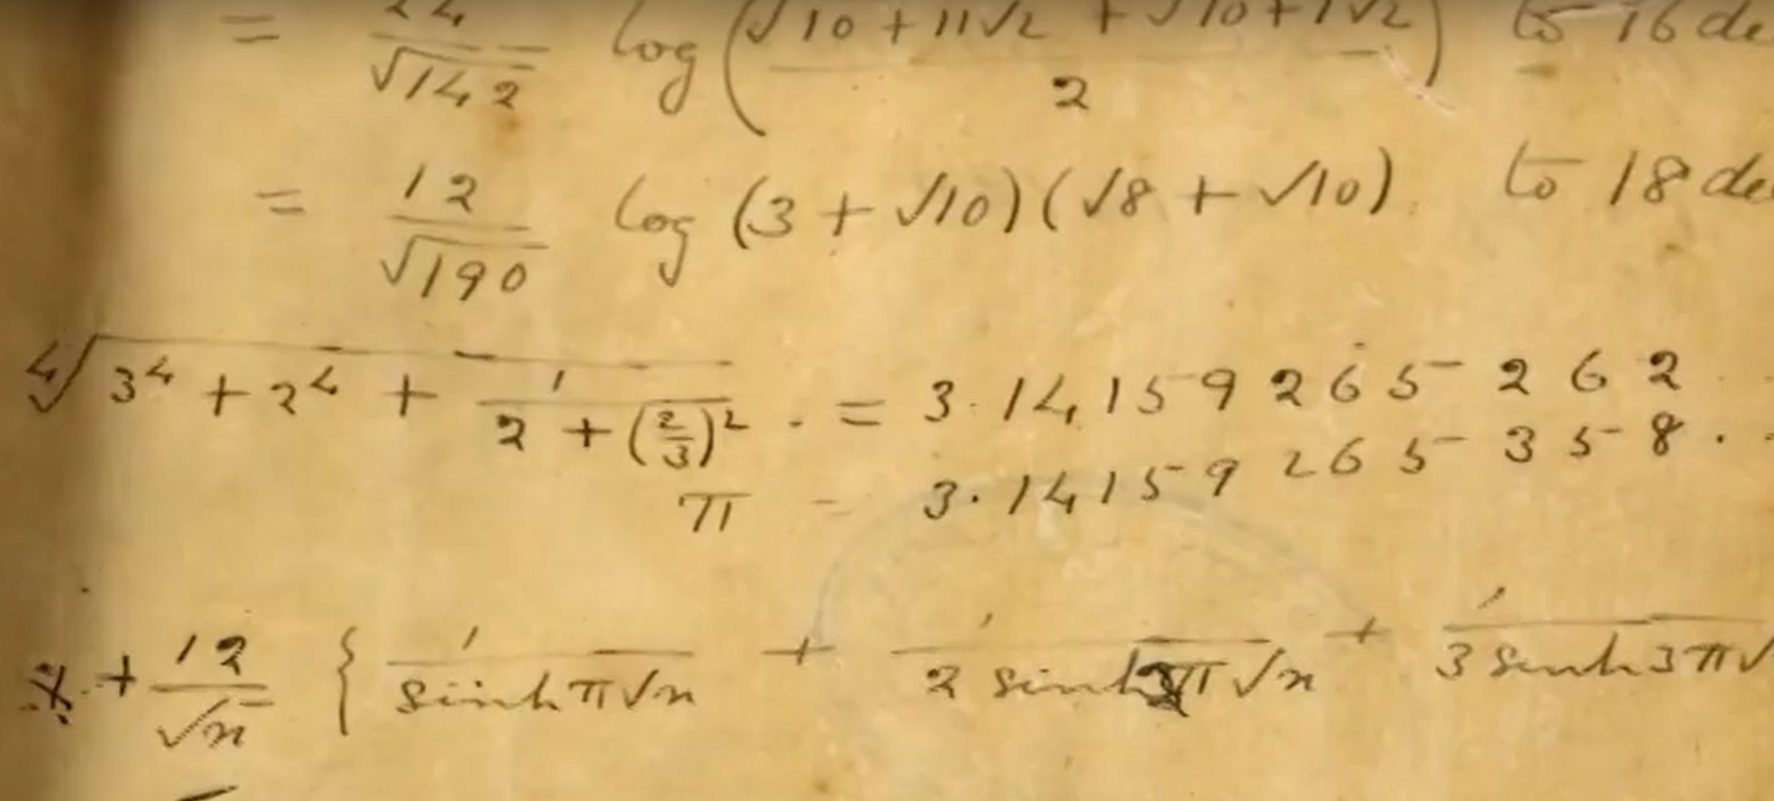 = 24/√142 log(√10+11√2 + √10+7√2 / 2) to 16 de
= 12/√190 log (3+√10)(√8+√10). to 18 de
∜3⁴+2⁴+1/2+(2/3)² . = 3.14159265262..
π = 3.14159265358..
+ 12/√n { 1/sinh π√n + 1/2 sinh 2π√n + 1/3 sinh 3π√